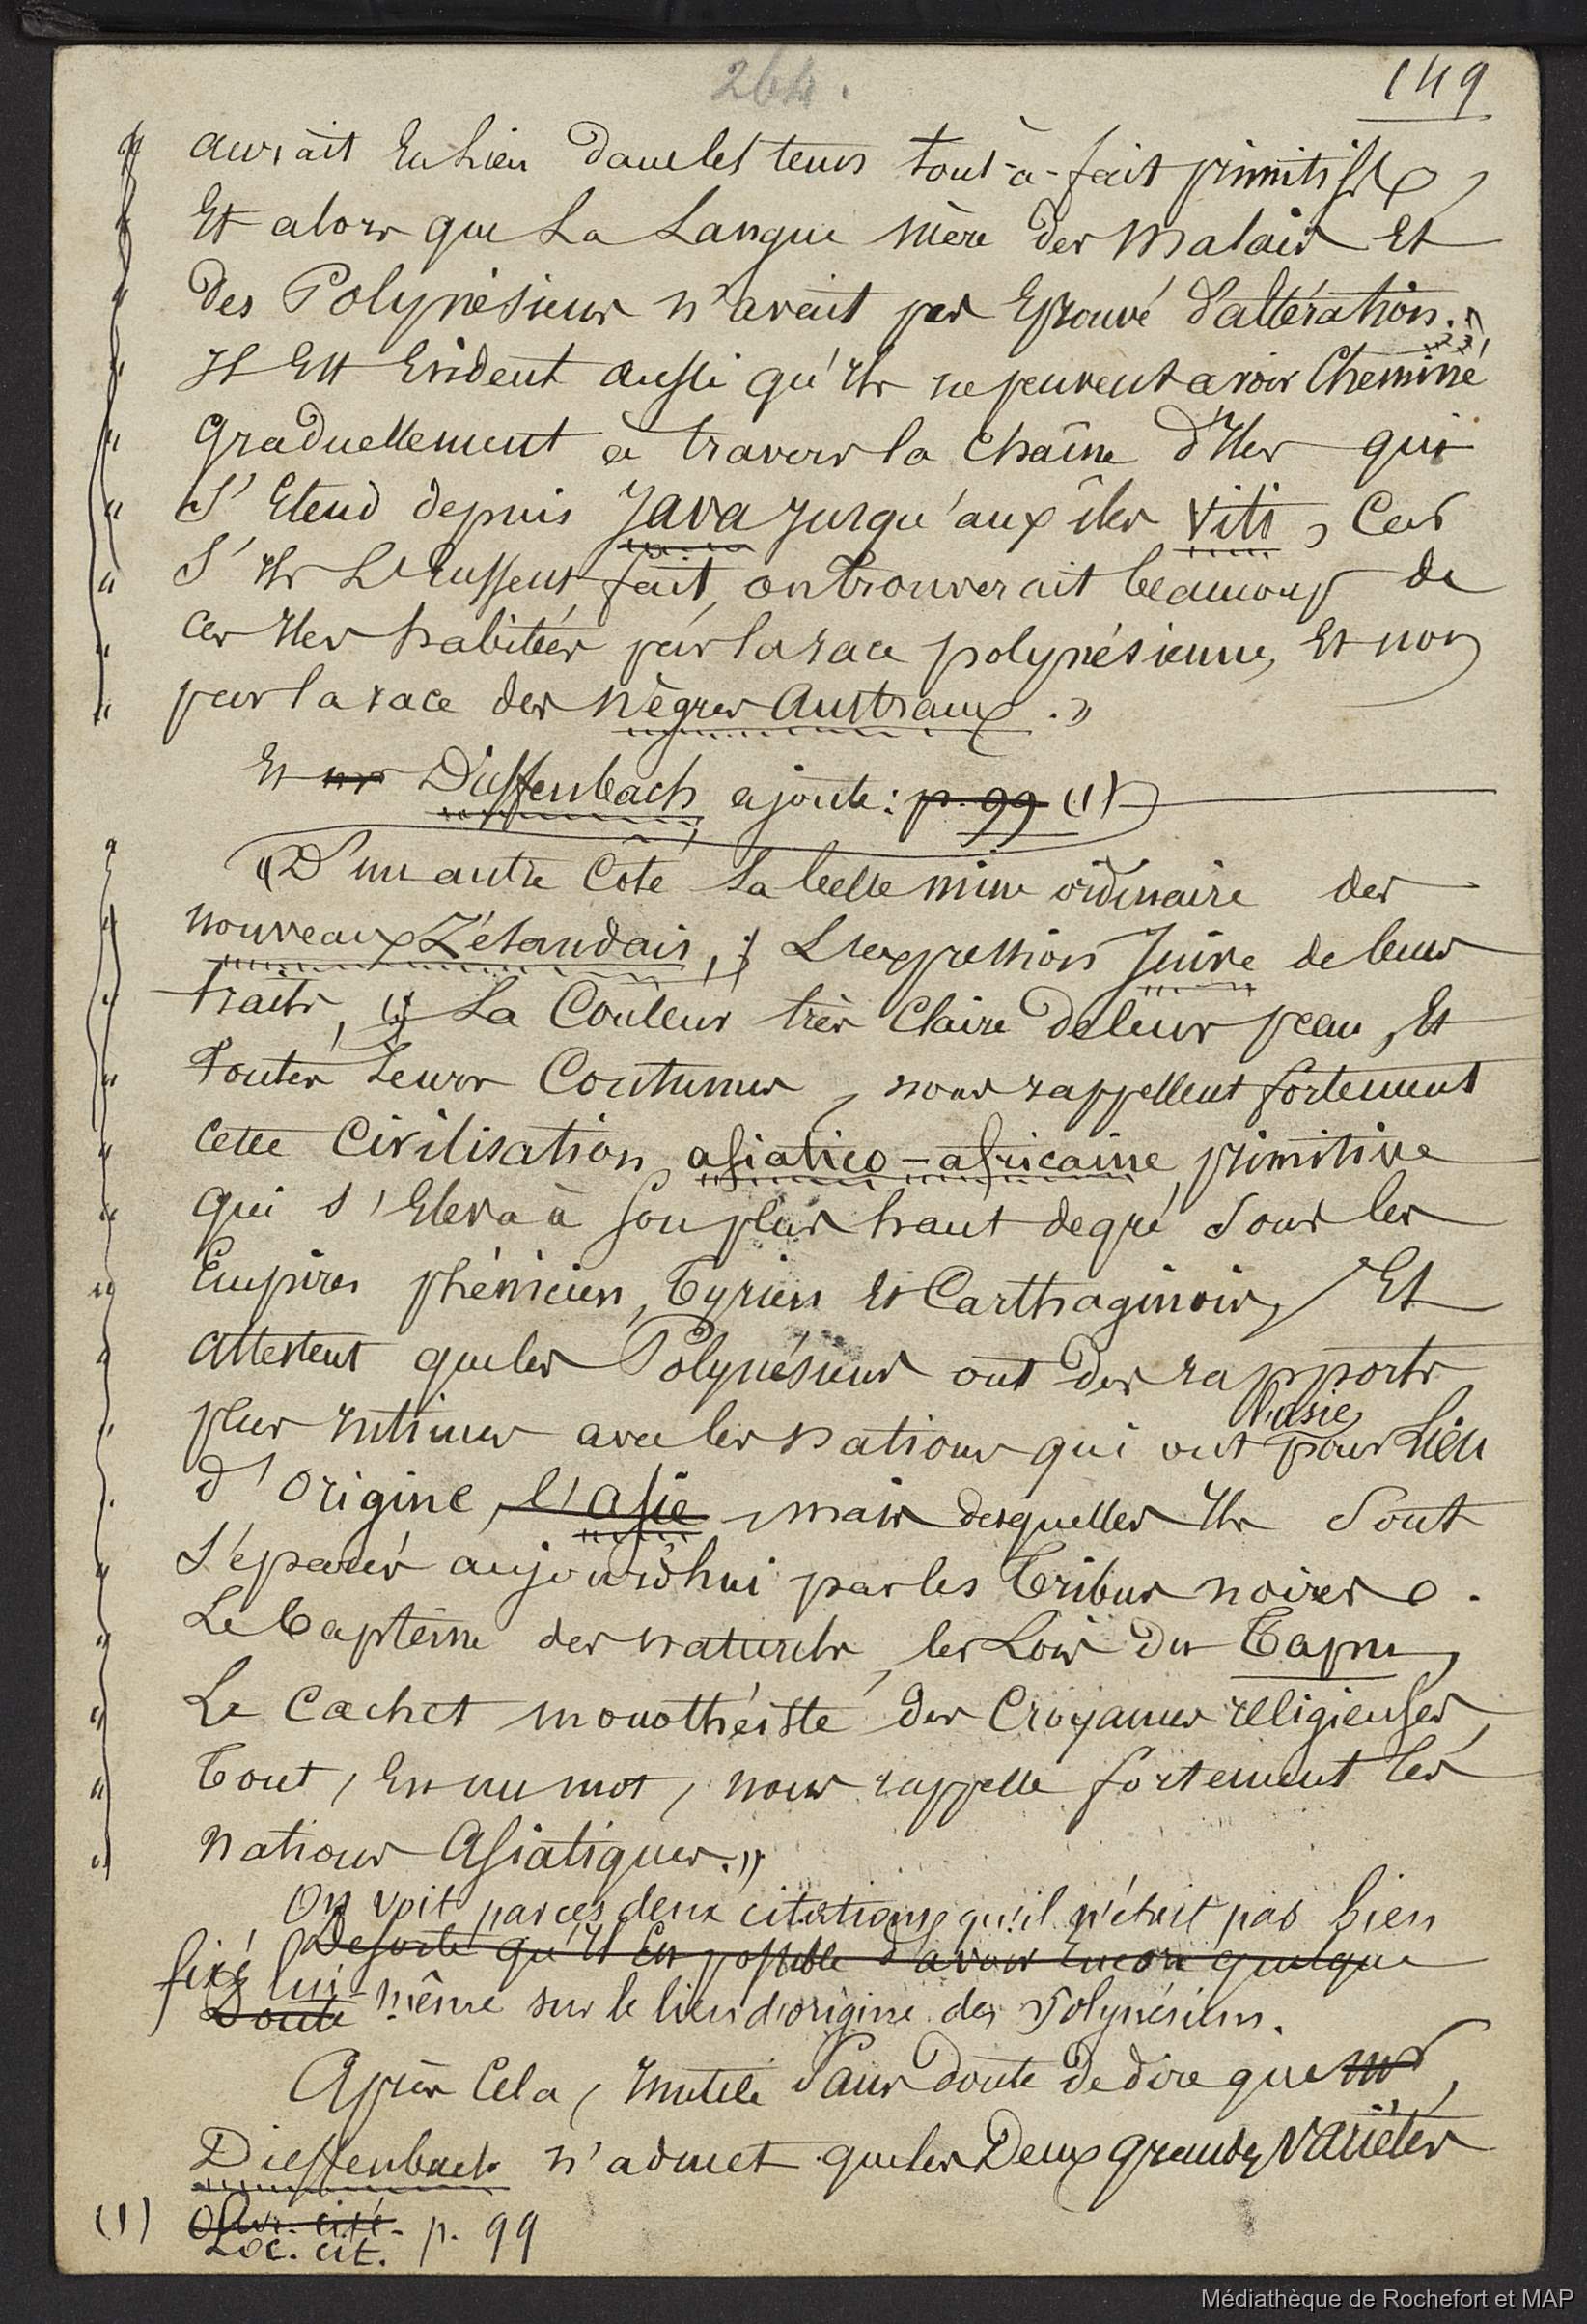 264.
149
aurait eu lieu dans les tems tout-à-fait primitifs,
Et alors que La Langue mère des Malais Et
des Polynésiens n'avait pas Eprouvé d'altération.
Il Est Evident aussi qu'Ils ne peuvent avoir Cheminé
graduellement à travers la Chaîne d'Iles qui
S'Etend depuis Java Jusqu'aux îles Viti, Car
S'Ils L'Eussent fait, on trouverait beaucoup de
ces Iles habitées par la race polynésienne, Et non
par la race des nègres Austraux. »
Et Mr Dieffenbach ajoute: p. 99 (1)
« D'un autre Côté la belle mine ordinaire des
nouveaux Zélandais, L'expression Juive de leurs
traits, La Couleur très Claire de leur peau, Et
Toutes Leurs Coutumes, nous rappellent fortement
cette Civilisation asiatico-africaine primitive
qui s'Eleva à son plus haut degré sous les
Empires phénicien, Tyrien Et Carthaginois, Et
attestent que les Polynésiens ont des rapports
plus intimes avec les nations qui ont pour Lieu
l'asie
d'Origine, l'asie, mais desquelles Ils Sont
Séparés aujourd'hui par les Tribus noires.
Le baptême des naturels, les Lois du Tapu,
Le Cachet monothéiste des Croyances religieuses,
Tout, En un mot, nous rappelle fortement les
nations Asiatiques. »
On voit par ces deux citations qu'il n'était pas bien
De sorte qu'Il Est possible d'avoir Encore quelque
fixé lui-même sur le lieu d'origine des Polynésiens.
Doute
Après Cela, Inutile Sans Doute De dire que Mr
Dieffenbach n'admet que les Deux grandes Variétés
(1) Ouv. cité. p. 99
Loc. cit.
Médiathèque de Rochefort et MAP